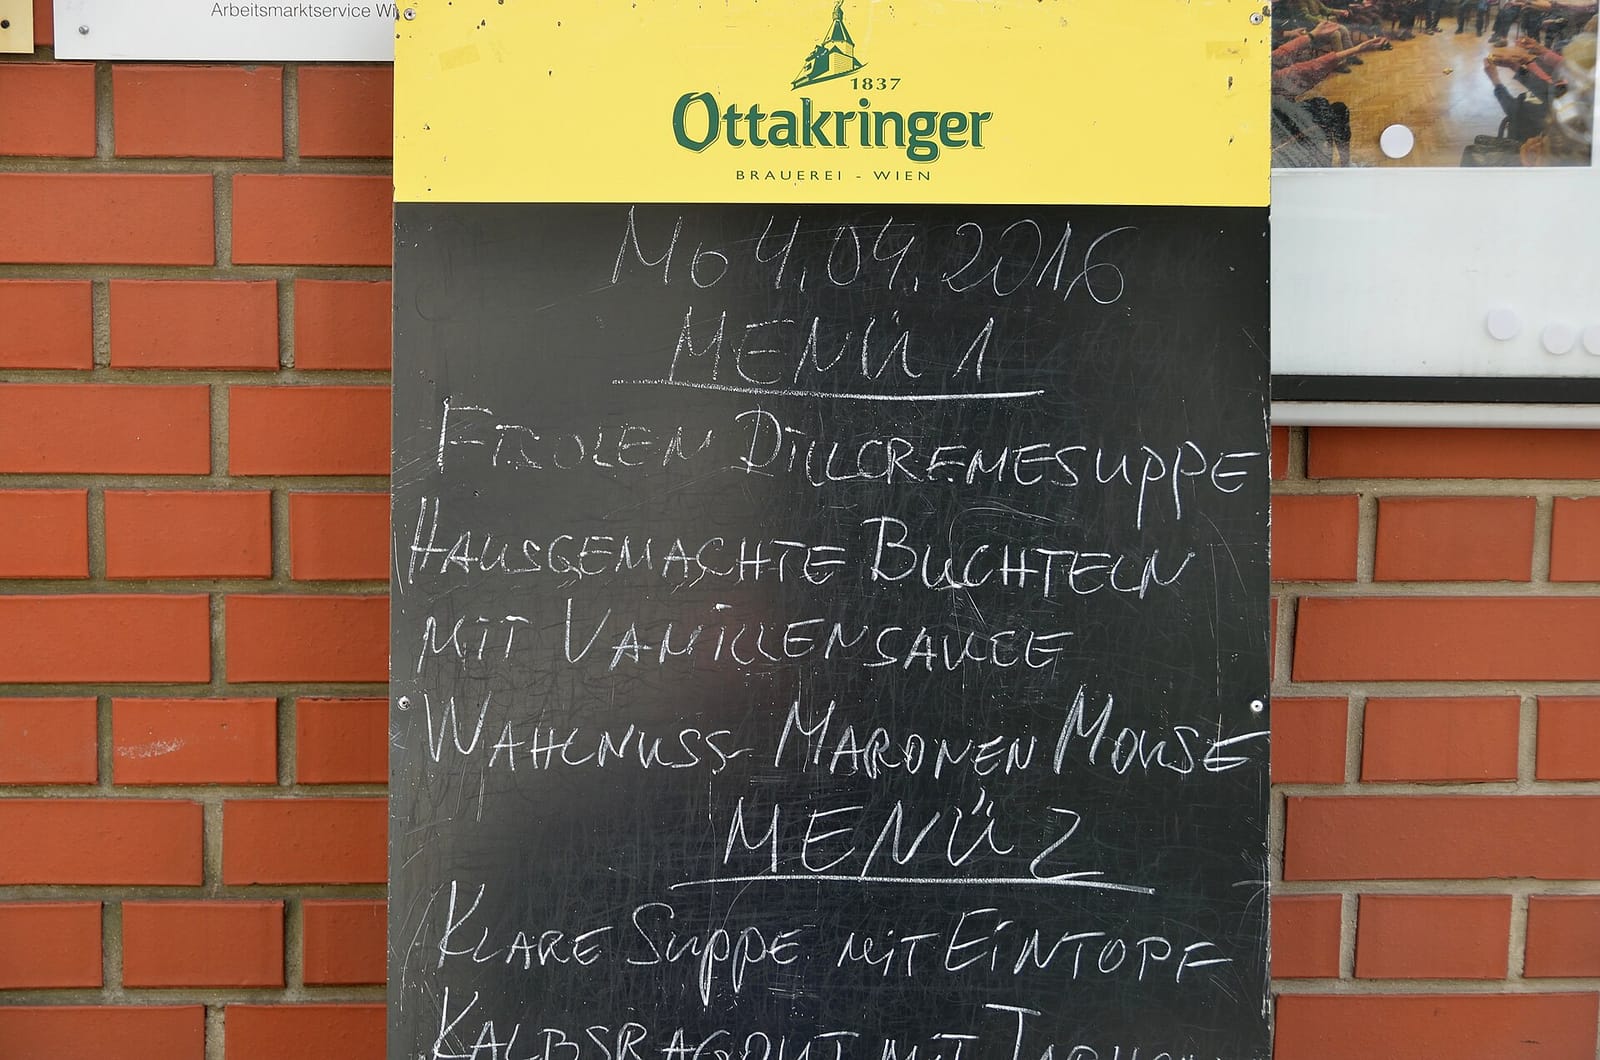 Arbeitsmarktservice Wi
1837
Ottakringer
BRAUEREI - WIEN
Mo 4.04.2016
MENÜ 1
FISOLEN DILLCREMESUPPE
HAUSGEMACHTE BUCHTELN
MIT VANILLENSAUCE
WAHLNUSS MARONEN MOUSE
MENÜ 2
KLARE SUPPE MIT EINTOPF
KALBSRAGOUT MIT